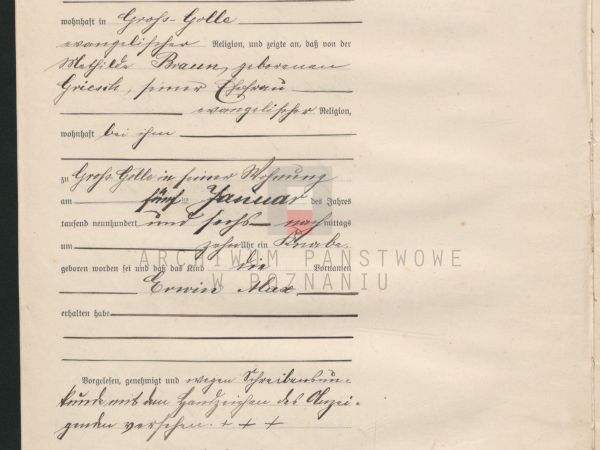 wohnhaft in Groß-Golle
evangelischer Religion, und zeigte an, daß von der
Mathilde Braun, geborenen
seiner Ehefrau
evangelischer Religion,
wohnhaft bei ihm
zu Groß-Golle in seiner Wohnung
am fünften Januar des Jahres
tausend neunhundert und sechs nachmittags
um zehn Uhr ein Knabe
geboren worden sei und daß das Kind die Vornamen
Erwin Max
erhalten habe
ARCHIWUM PAŃSTWOWE
W POZNANIU
Vorgelesen, genehmigt und wegen Schreibensun-
kunde mit den Handzeichen des Anzei-
genden versehen. + + +